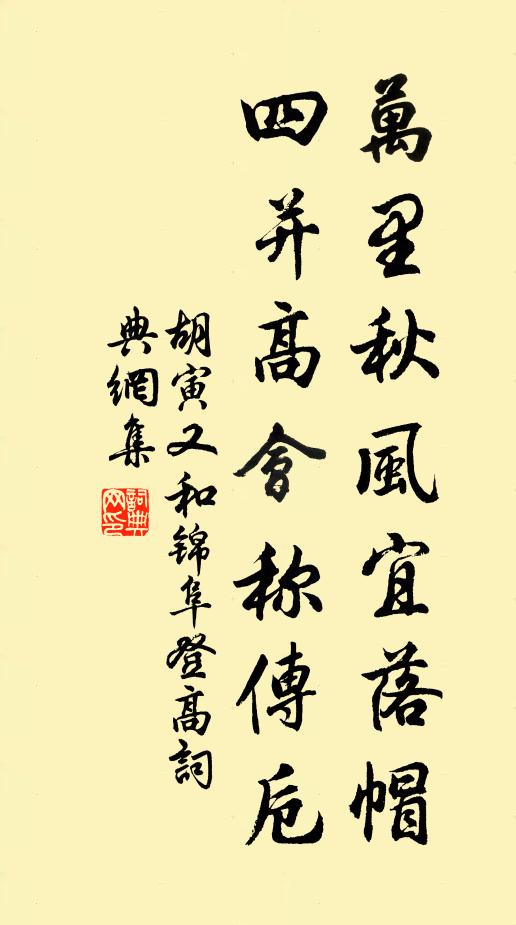 萬里秋風宜落帽
四并高會称傳卮
胡寅又和锦阜登高詞
典網集
詞典网印